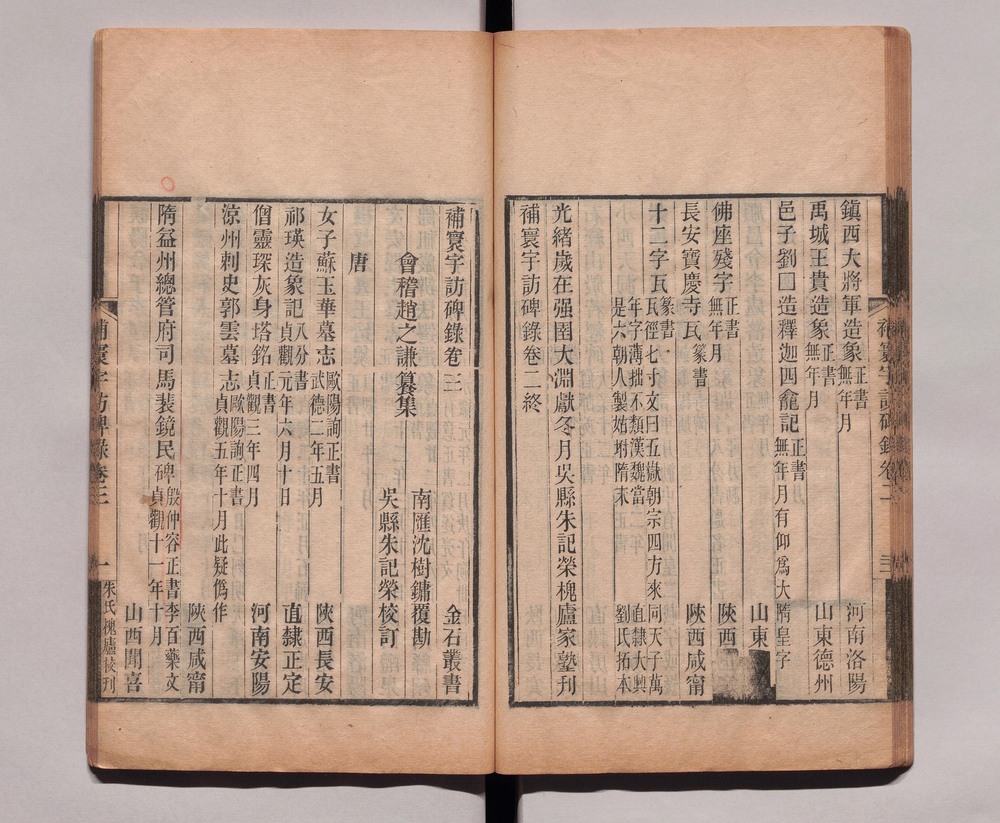 鎮西大將軍造象 正書 無年月 河南洛陽
禹城王貴造象 正書 無年月 山東德州
邑子劉囗造釋迦四龕記 正書 無年月有仰爲大隋皇字 山東
佛座殘字 正書 無年月 陝西
長安寶慶寺瓦 篆書 陝西咸甯
十二字瓦 篆書 瓦徑七寸文曰五嶽朝宗四方來同天子萬年字薄拙不類漢魏當是六朝人製姑坿隋末 直隸大興劉氏拓本
光緒歲在强圉大淵獻冬月吳縣朱記榮槐廬家塾刊
補寰宇訪碑錄卷二終
補寰宇訪碑錄卷二
補寰宇訪碑錄卷三 金石叢書
會稽趙之謙纂集
南匯沈樹鏞覆勘
吳縣朱記榮校訂
唐
女子蘇玉華墓志 歐陽詢正書 武德二年五月 陝西長安
祁瑛造象記 八分書 貞觀元年六月十日 直隸正定
僧靈琛灰身塔銘 正書 貞觀三年四月 河南安陽
涼州刺史郭雲墓志 歐陽詢正書 貞觀五年十月此疑僞作 陝西咸甯
隋益州總管府司馬裴鏡民碑 殷仲容正書李百藥文 貞觀十一年十月 山西聞喜
補寰宇訪碑錄卷三 一 朱氏槐廬校刊